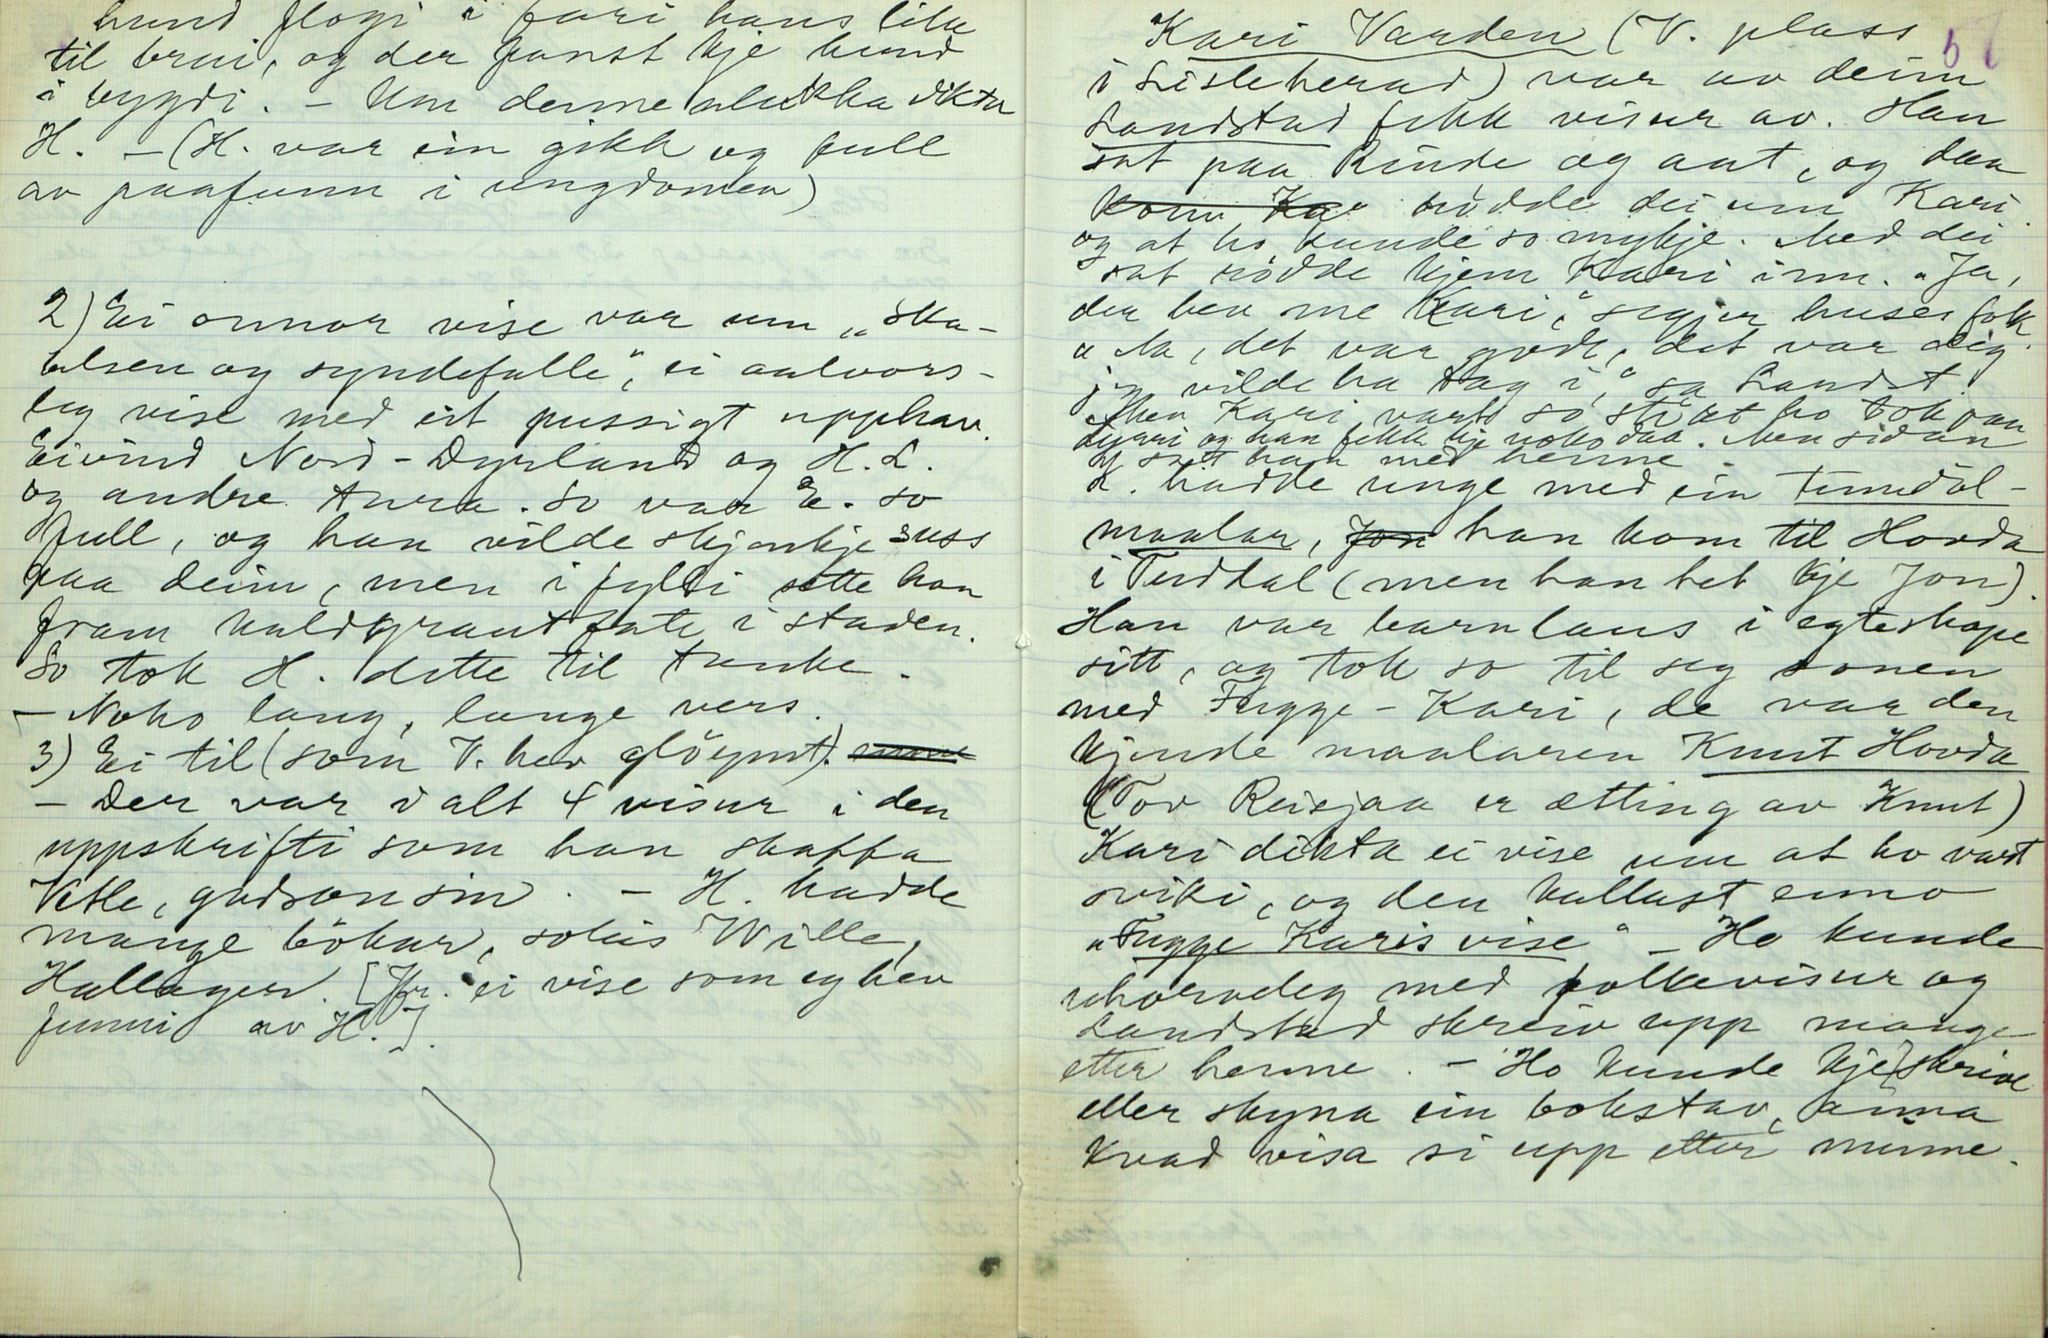 hund flogi i fari hans like
til brui, og der fanst kje hund
i bygdi. – Um denne slukka dikta
H. – (H. var ein gikk og full
av paafunn i ungdomen)
2) Ei onnor vise var um „ska-
belsen og syndefalle", ei aalvors-
leg vise med eit pussigt upphav.
Eivind Nord-Dyrland og H. L.
og andre tura. So var E. so
full, og han vilde skjenkje suss
paa deim, men i fylli sette han
fram kaldgrautfate i staden.
So tok H. dette til tanke.
– Noko lang, lange vers.
3) Ei til (som V. hev gløymt).
– Der var i alt 4 visur i den
uppskrifti som han skaffa
Vetle, gudson sin. – H. hadde
mange bökar, soleis Wille,
Hallager. [Jfr. ei vise som eg hev
funni av H.].
57
Kari Varden (V. plass
i Lisleherad) var av deim
Landstad fekk visur av. Han
sat paa Rinde og aat, og daa
kom Ka rødde dei um Kari
og at ho kunde so mykje. Med dei
sat rødde kjem Kari inn. „Ja,
der hev me Kari," segjer husesfolk.
„Aa, det var godt, det var dig
jeg vilde ha tag i," sa Landst.
Men Kari vart so at ho tok
og han fekk kje noko daa. Men sidan
sat han med henne.
L. hadde unge med ein Tinndøl-
maalar, Jon han kom til Hovda
i Tuddal (men han het kje Jon).
Han var barnlaus i egteskape
sitt, og tok so til seg sonen
med Fugge-Kari, de var den
kjende maalaren Knut Hovda
(Tov Reisjaa er ætting av Knut)
Kari dikta ei vise um at ho vart
sviki, og den kallast enno
„Fugge Karis vise" – Ho kunde
uhorveleg med folkevisur og
Landstad skreiv upp mange
etter henne. – Ho kunde kje skrive
eller skyna ein bokstav, aina
kvad visa si upp etter minne.